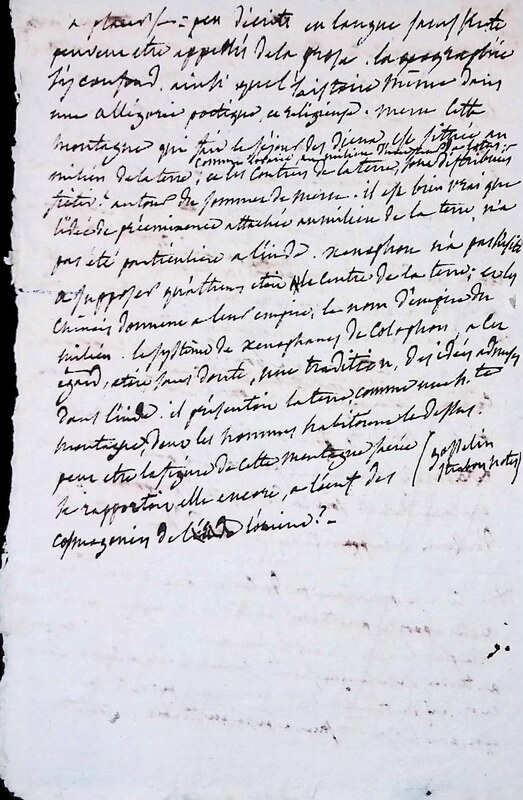 a plaisir — peu d'écrits en langue sanskrite
peuvent etre appellés de la prose. la geographie
s'y confond, ainsi que l'histoire même dans
une allégorie poetique, et religieuse. merou cette
montagne qui fait le séjour des dieux est située au
comme l'odaire, au milieu
milieu de la terre; et les contrées de la terre, sont distribuées
autour du sommet de merou. il est bien vrai que
l'idée de préeminence attachée au milieu de la terre n'a
pas été particuliere a l'inde. xenophon n'a pas hésité
a supposer qu'athenes etoit le centre de la terre; et les
chinois donnent a leur empire, le nom d'empire du
milieu. le systême de xenophanes de Colophon, a cet
egard, etoit sans doute, une tradition, des idées admises
dans l'inde. il présentoit la terre, comme une hte
montagne, dont les hommes habitoient le dessus.
peut etre la figure de cette montagne sacrée
se rapportoit elle encore, a l'oeuf des
cosmogonies de l'orient? —
(gosselin
strabon notes)